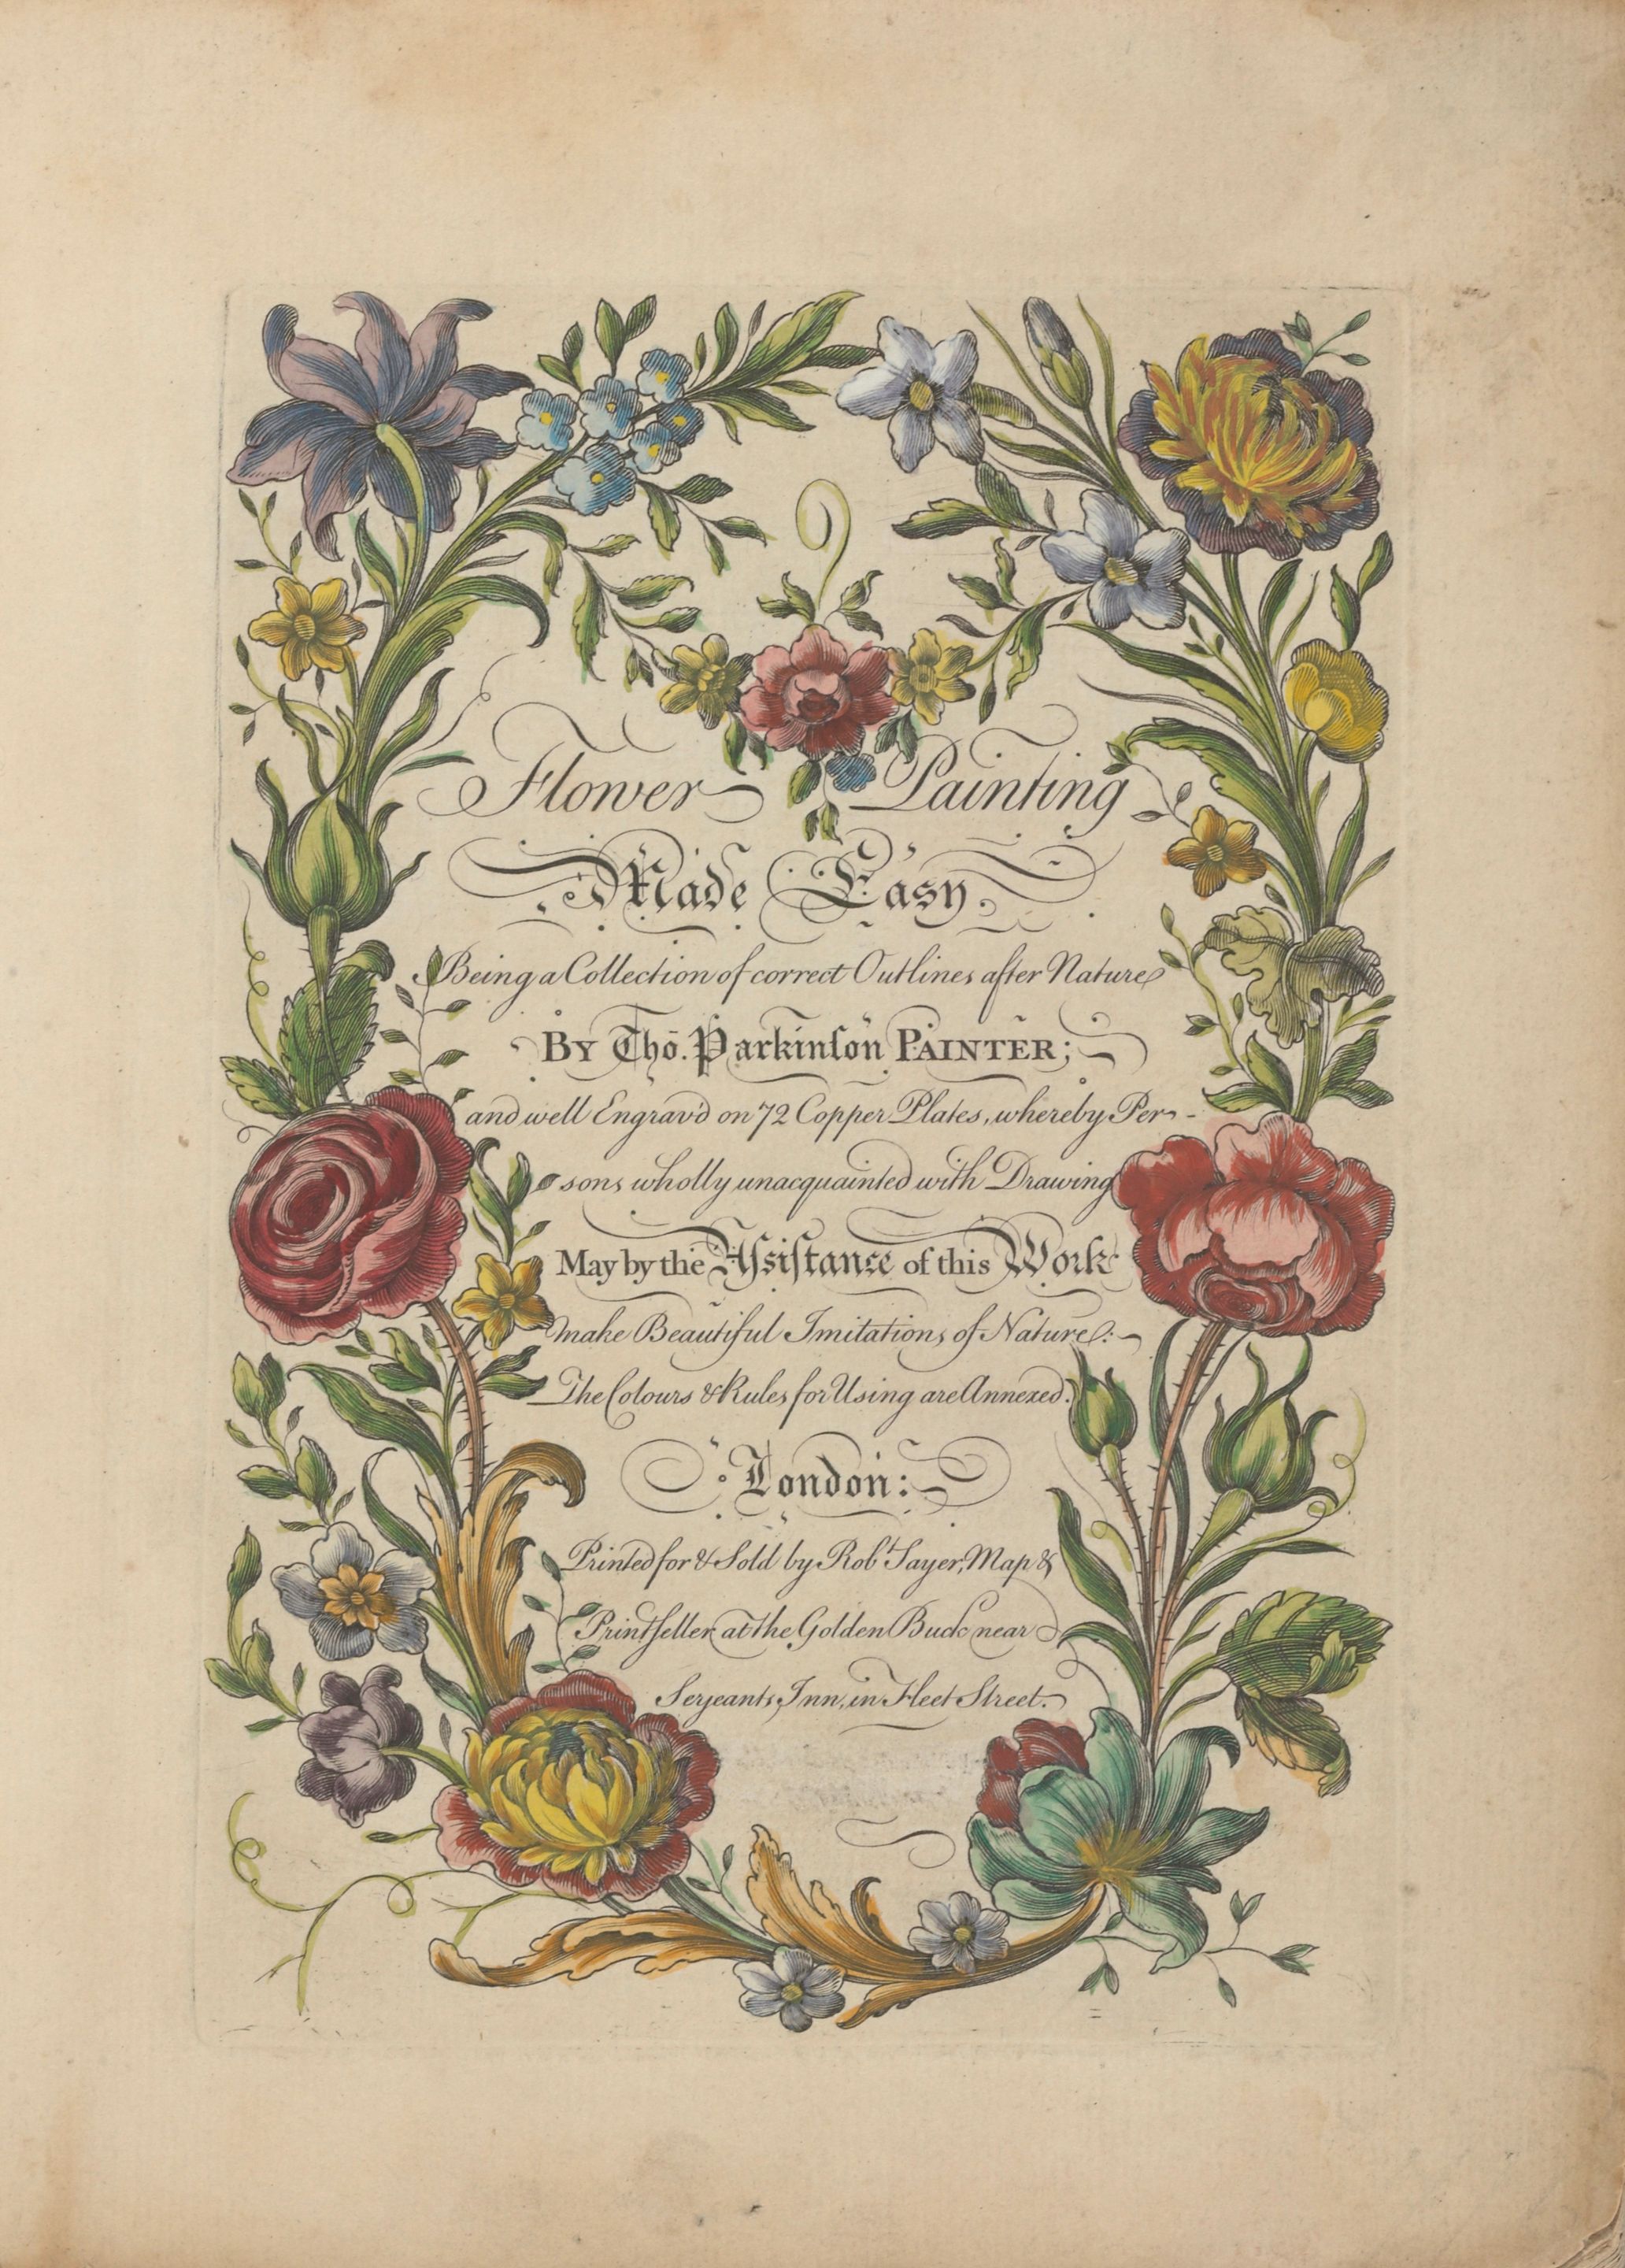 Flower Painting
Made Easy.
Being a Collection of correct Outlines after Nature
BY Tho. Parkinſon PAINTER;
and well Engrav'd on 72 Copper Plates, whereby Per-
sons wholly unacquainted with Drawing
May by the Aſsiſtance of this Work
make Beautiful Imitations of Nature:
The Colours & Rules for Using are Annexed.
London:
Printed for & Sold by Robt. Sayer, Map &
Printſeller at the Golden Buck near
Serjeants Inn, in Fleet Street.